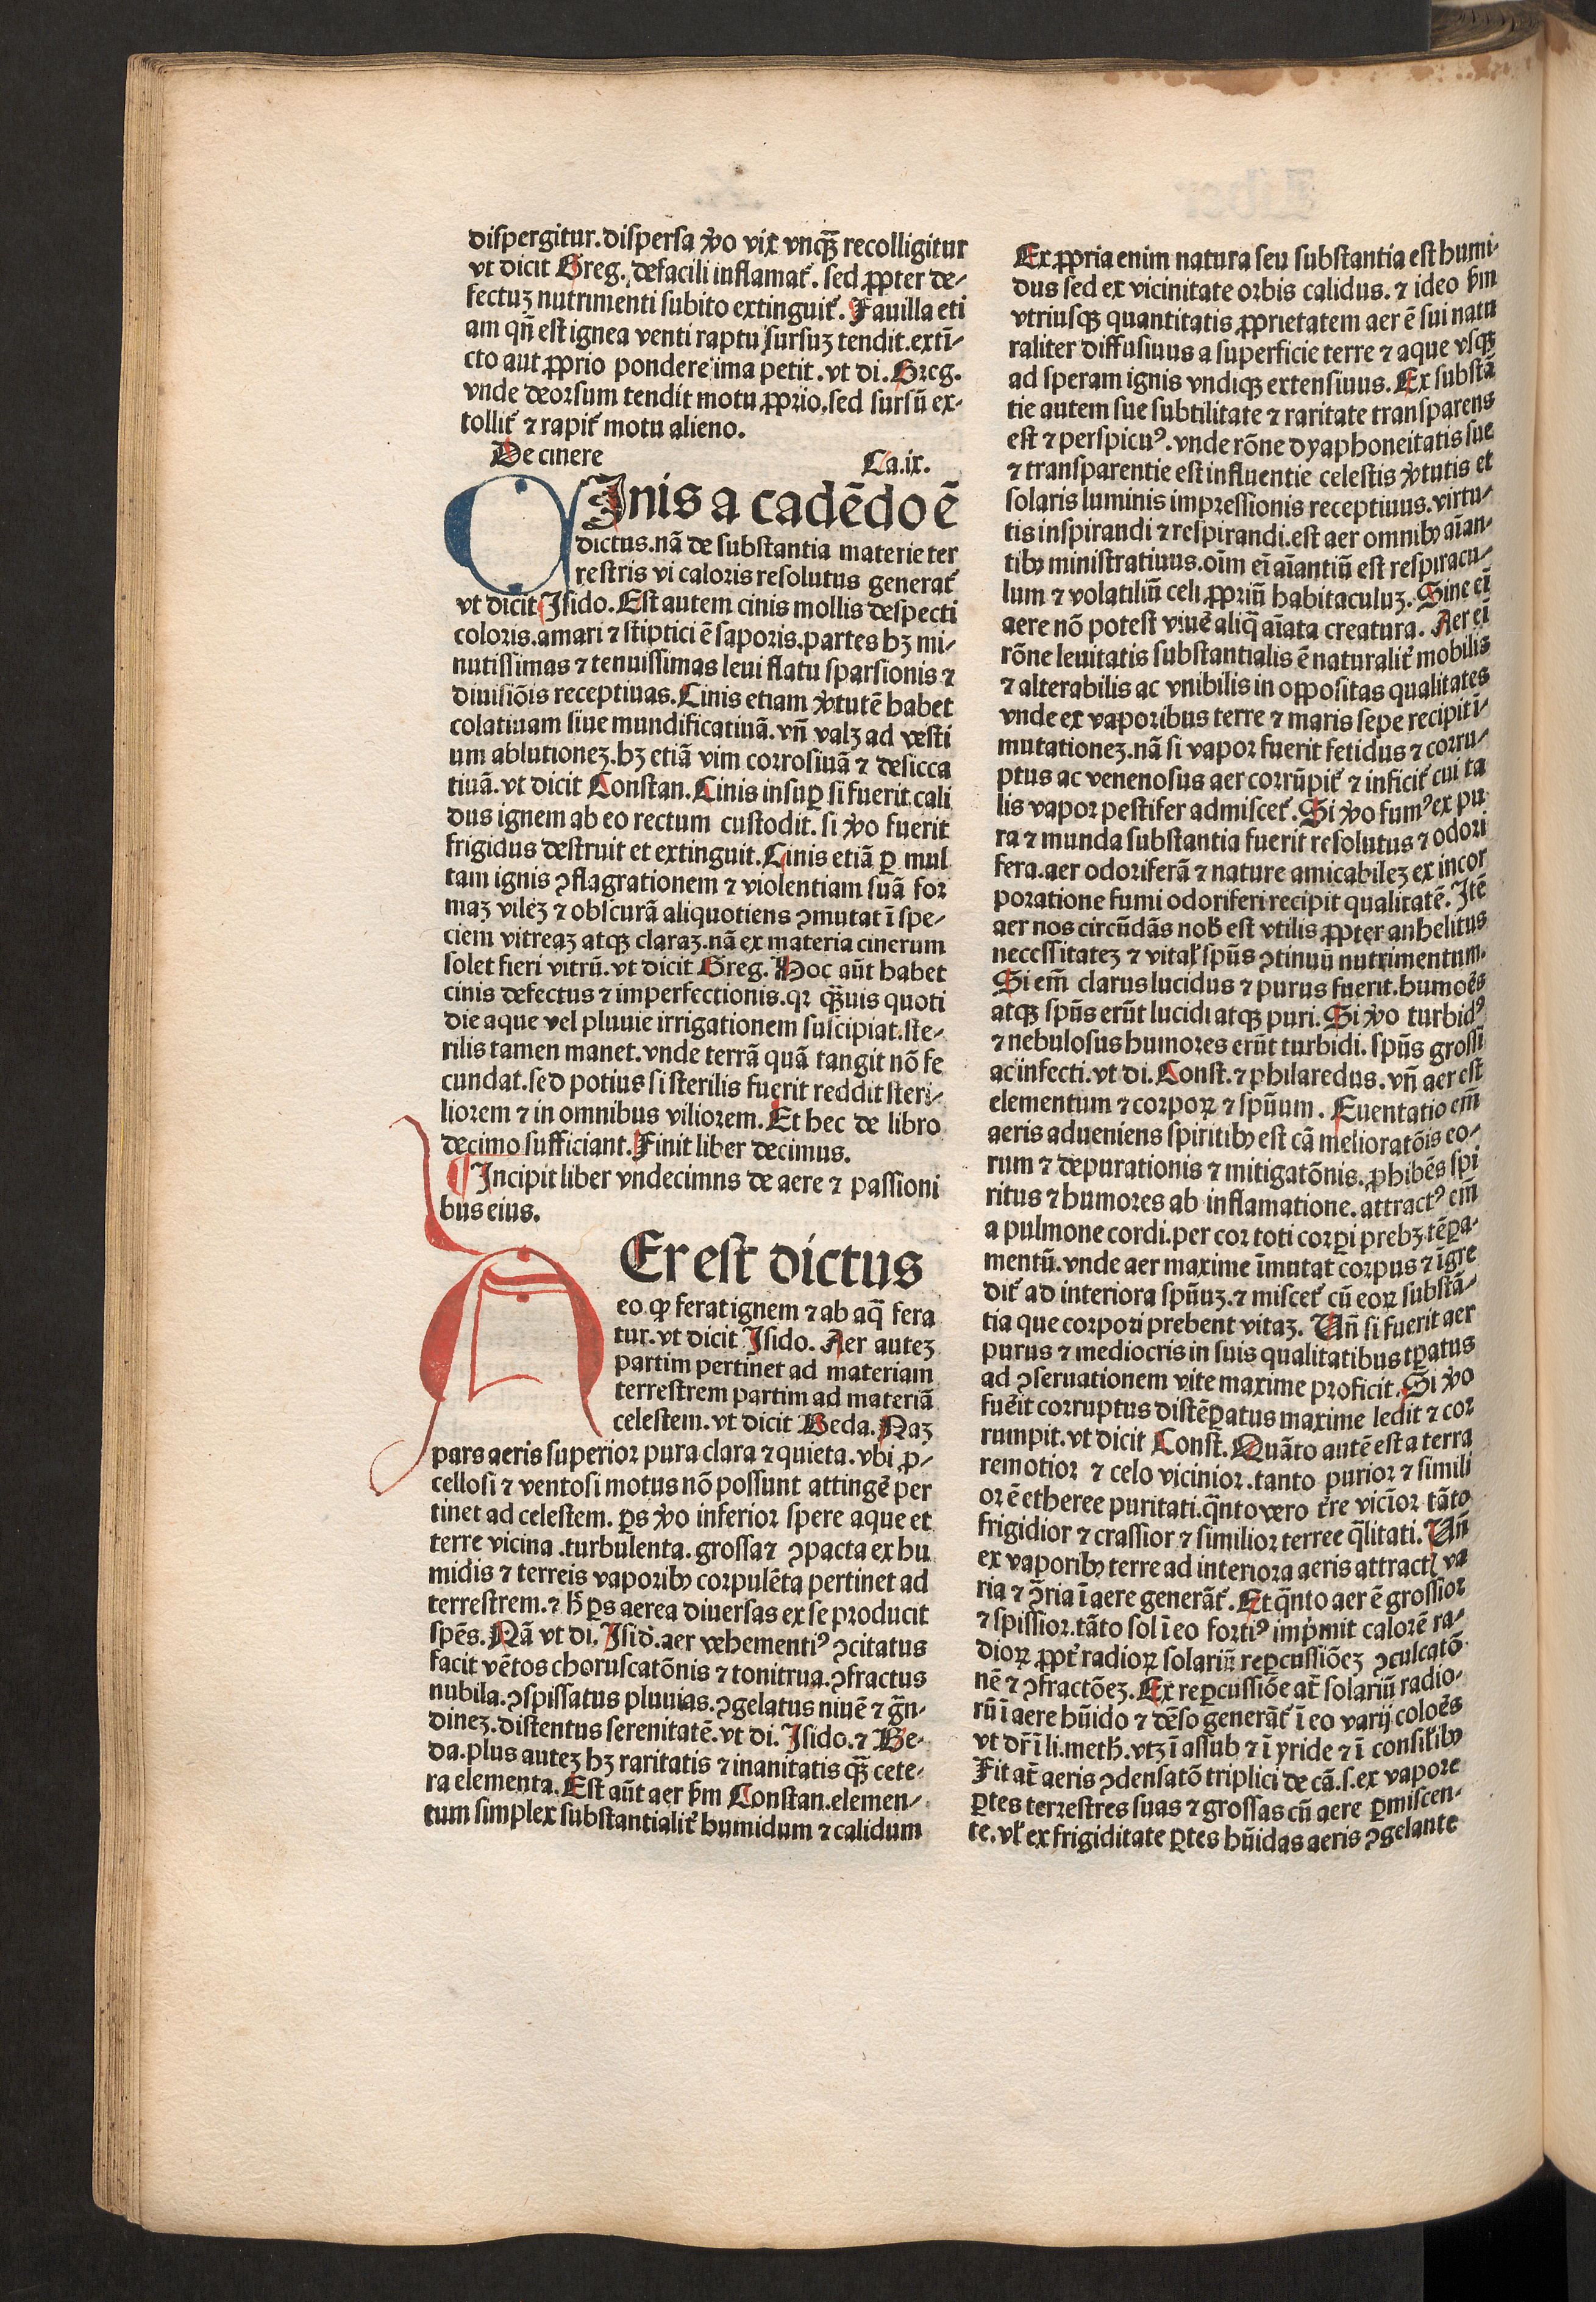 dispergitur.dispersa ꝟo vix vnqȝ̄ recolligitur
vt dicit Greg. defacili inflamat᷑. sed ꝓpter de⸗
fectuȝ nutrimenti subito extinguit᷑. Fauilla eti
am qn̄ est ignea venti raptu sursuȝ tendit.extī⸗
cto aut ꝓprio pondere ima petit.vt di. Greg.
vnde deorsum tendit motu ꝓprio.sed sursū ex⸗
tollit᷑ ⁊ rapit᷑ motu alieno.
De cinere Ca.ix.
CInis a cadēdo ē
dictus.nā de substantia materie ter
restris vi caloris resolutus generat᷑
vt dicit Isido. Est autem cinis mollis despecti
coloris.amari ⁊ stiptici ē saporis.partes hȝ mi⸗
nutissimas ⁊ tenuissimas leui flatu sparsionis ⁊
diuisiōis receptiuas.Cinis etiam ꝟtutē habet
colatiuam siue mundificatiuā.vn̄ valȝ ad vesti
um ablutioneȝ.hȝ etiā vim corrosiuā ⁊ desicca
tiuā.vt dicit Constan. Cinis insuꝑ si fuerit cali
dus ignem ab eo rectum custodit. si ꝟo fuerit
frigidus destruit et extinguit.Cinis etiā ꝑ mul
tam ignis ꝯflagrationem ⁊ violentiam suā for
maȝ vileȝ ⁊ obscurā aliquotiens ꝯmutat ī spe⸗
ciem vitreaȝ atqȝ claraȝ.nā ex materia cinerum
solet fieri vitrū.vt dicit Greg. Hoc aūt habet
cinis defectus ⁊ imperfectionis.qꝛ qȝ̄uis quoti
die aque vel pluuie irrigationem suscipiat.ste⸗
rilis tamen manet.vnde terrā quā tangit nō fe
cundat.sed potius si sterilis fuerit reddit steri⸗
liorem ⁊ in omnibus viliorem. Et hec de libro
decimo sufficiant. Finit liber decimus.
¶ Incipit liber vndecimns de aere ⁊ passioni
bus eius.
AEr est dictus
eo ꝙ ferat ignem ⁊ ab aq̄ fera
tur.vt dicit Isido. Aer auteȝ
partim pertinet ad materiam
terrestrem partim ad materiā
celestem.vt dicit Beda. Naȝ
pars aeris superior pura clara ⁊ quieta.vbi ꝓ⸗
cellosi ⁊ ventosi motus nō possunt attingē per
tinet ad celestem. ꝑs ꝟo inferior spere aque et
terre vicina .turbulenta.grossa⁊ ꝯpacta ex hu
midis ⁊ terreis vaporibꝰ corpulēta pertinet ad
terrestrem.⁊ h̄ ꝑs aerea diuersas ex se producit
spēs. Nā vt di. Isid.aer vehementiꝰ ꝯcitatus
facit vētos choruscatōnis ⁊ tonitrua.ꝯfractus
nubila.ꝯspissatus pluuias.ꝯgelatus niuē ⁊ gr̄n⸗
dineȝ.distentus serenitatē.vt di. Isido.⁊ Be⸗
da.plus auteȝ hȝ raritatis ⁊ inanitatis qȝ̄ cete⸗
ra elementa. Est aūt aer ẜm Constan.elemen⸗
tum simplex substantialit᷑ humidum ⁊ calidum
Ex ꝓpria enim natura seu substantia est humi⸗
dus sed ex vicinitate orbis calidus. ⁊ ideo ẜm
vtriusqȝ quantitatis ꝓprietatem aer ē sui natu
raliter diffusiuus a superficie terre ⁊ aque vsqȝ
ad speram ignis vndiqȝ extensiuus. Ex substā
tie autem sue subtilitate ⁊ raritate transparens
est ⁊ perspicuꝰ.vnde rōne dyaphoneitatis sue
⁊ transparentie est influentie celestis ꝟtutis et
solaris luminis impressionis receptiuus.virtu⸗
tis inspirandi ⁊ respirandi.est aer omnibꝰ aīan⸗
tibꝰ ministratiuus.oīm eī aīantiū est respiracu⸗
lum ⁊ volatiliū celi ꝓpriū habitaculuȝ. Sine eī
aere nō potest viuē aliq̄ aīata creatura. Aer eī
rōne leuitatis substantialis ē naturalit᷑ mobilis
⁊ alterabilis ac vnibilis in oppositas qualitates
vnde ex vaporibus terre ⁊ maris sepe recipit ī⸗
mutationeȝ.nā si vapor fuerit fetidus ⁊ corru⸗
ptus ac venenosus aer corrūpit᷑ ⁊ inficit᷑ cui ta
lis vapor pestifer admiscet᷑. Si ꝟo fumꝰ ex pu
ra ⁊ munda substantia fuerit resolutus ⁊ odori
fera.aer odoriferā ⁊ nature amicabileȝ ex incor
poratione fumi odoriferi recipit qualitatē. Itē
aer nos circūdās nob̄ est vtilis ꝓpter anhelitus
necessitateȝ ⁊ vital̄ spūs ꝯtinuū nutrimentum.
Si em̄ clarus lucidus ⁊ purus fuerit.humoēs
atqȝ spūs erūt lucidi atqȝ puri. Si ꝟo turbidꝰ
⁊ nebulosus humores erūt turbidi. spūs grossi
ac infecti.vt di. Const.⁊ philaredus.vn̄ aer est
elementum ⁊ corpoꝝ ⁊ spūum. Euentatio em̄
aeris adueniens spiritibꝰ est cā melioratōis eo⸗
rum ⁊ depurationis ⁊ mitigatōnis.ꝓhibēs spi
ritus ⁊ humores ab inflamatione.attractꝰ em̄
a pulmone cordi.per cor toti corꝑi prebȝ.tēꝑa⸗
mentū.vnde aer maxime īmutat corpus ⁊ īgre
dit᷑ ad interiora spūuȝ.⁊ miscet᷑ cū eoꝝ substā⸗
tia que corpori prebent vitaȝ. Vn̄ si fuerit aer
purus ⁊ mediocris in suis qualitatibus tꝑatus
ad ꝯseruationem vite maxime proficit. Si ꝟo
fuēit corruptus distēꝑatus maxime ledit ⁊ cor
rumpit.vt dicit Const. Quāto autē est a terra
remotior ⁊ celo vicinior.tanto purior ⁊ simili
or ē etheree puritati.q̄nto vero t᷑re viciīor tāto
frigidior ⁊ crassior ⁊ similior terree q̄litati. Vn̄
ex vaporibꝰ terre ad interiora aeris attract᷑ va
ria ⁊ ꝯ̄ria ī aere generāt᷑. Et q̄nto aer ē grossior
⁊ spissior.tāto sol ī eo fortiꝰ imp̄mit calorē ra⸗
dioꝝ ꝓpt᷑ radioꝝ solariū reꝑcussiōeȝ ꝯculcatō
nē ⁊ ꝯfractōeȝ. Ex reꝑcussiōe at̄ solariū radio⸗
rū ī aere hūido ⁊ dēso generāt᷑ ī eo varij coloēs
vt dr̄ ī li.meth̄.vtȝ ī assub ⁊ ī yride ⁊ ī consil̄ibꝰ
Fit at̄ aeris ꝯdensatō triplici de cā.s.ex vapore
ꝑtes terrestres suas ⁊ grossas cū aere ꝑmiscen⸗
te.vl̄ ex frigiditate ꝑtes hūidas aeris ꝯgelante